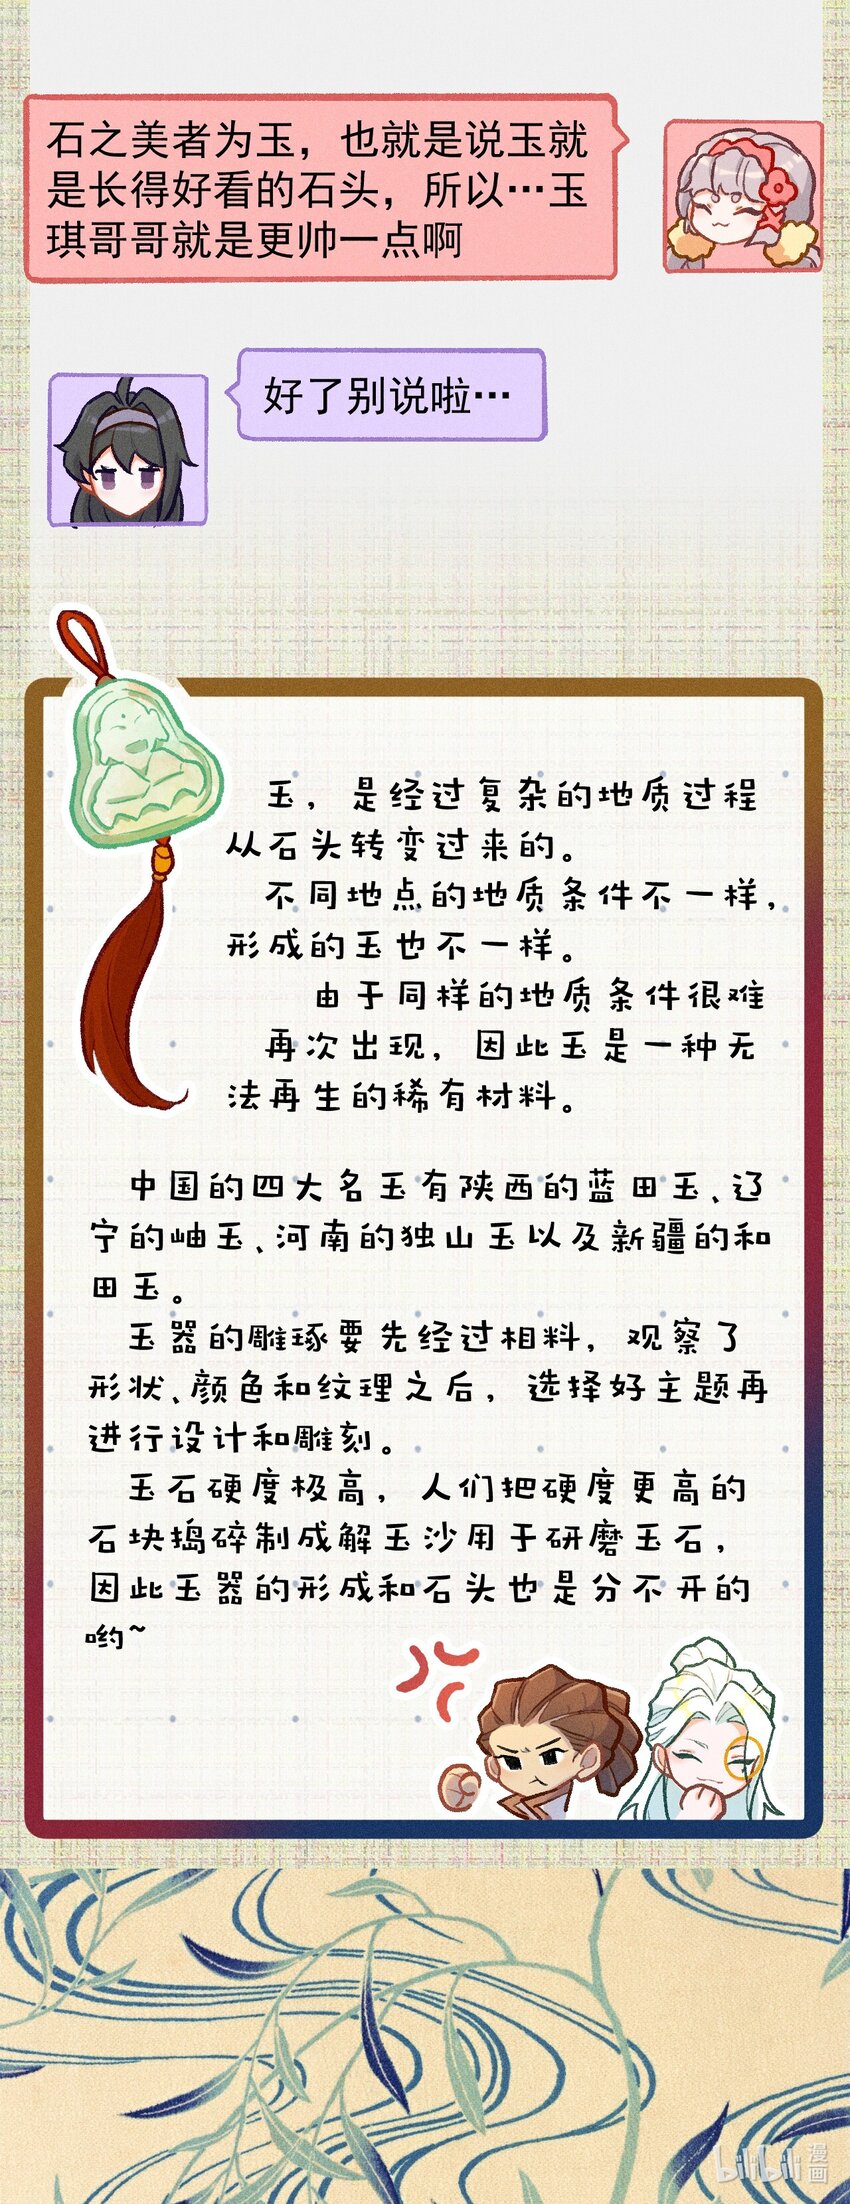 石之美者为玉，也就是说玉就
是长得好看的石头，所以…玉
琪哥哥就是更帅一点啊
好了别说啦…
玉，是经过复杂的地质过程
从石头转变过来的。
不同地点的地质条件不一样，
形成的玉也不一样。
由于同样的地质条件很难
再次出现，因此玉是一种无
法再生的稀有材料。
中国的四大名玉有陕西的蓝田玉、辽
宁的岫玉、河南的独山玉以及新疆的和
田玉。
玉器的雕琢要先经过相料，观察了
形状、颜色和纹理之后，选择好主题再
进行设计和雕刻。
玉石硬度极高，人们把硬度更高的
石块捣碎制成解玉沙用于研磨玉石，
因此玉器的形成和石头也是分不开的
哟~
bilibili 漫画